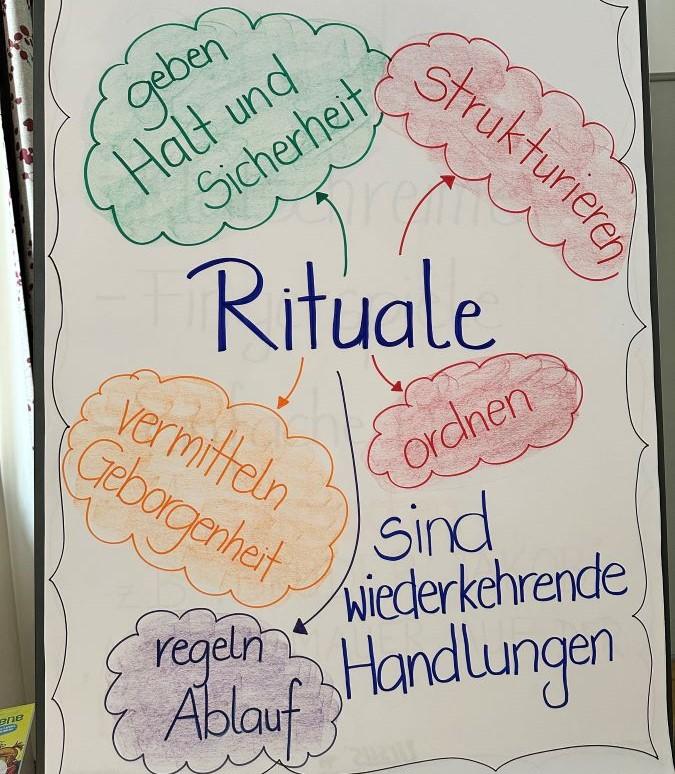 geben
Halt und
Sicherheit
strukturieren
Rituale
vermitteln
Geborgenheit
ordnen
sind
wiederkehrende
Handlungen
regeln
Ablauf